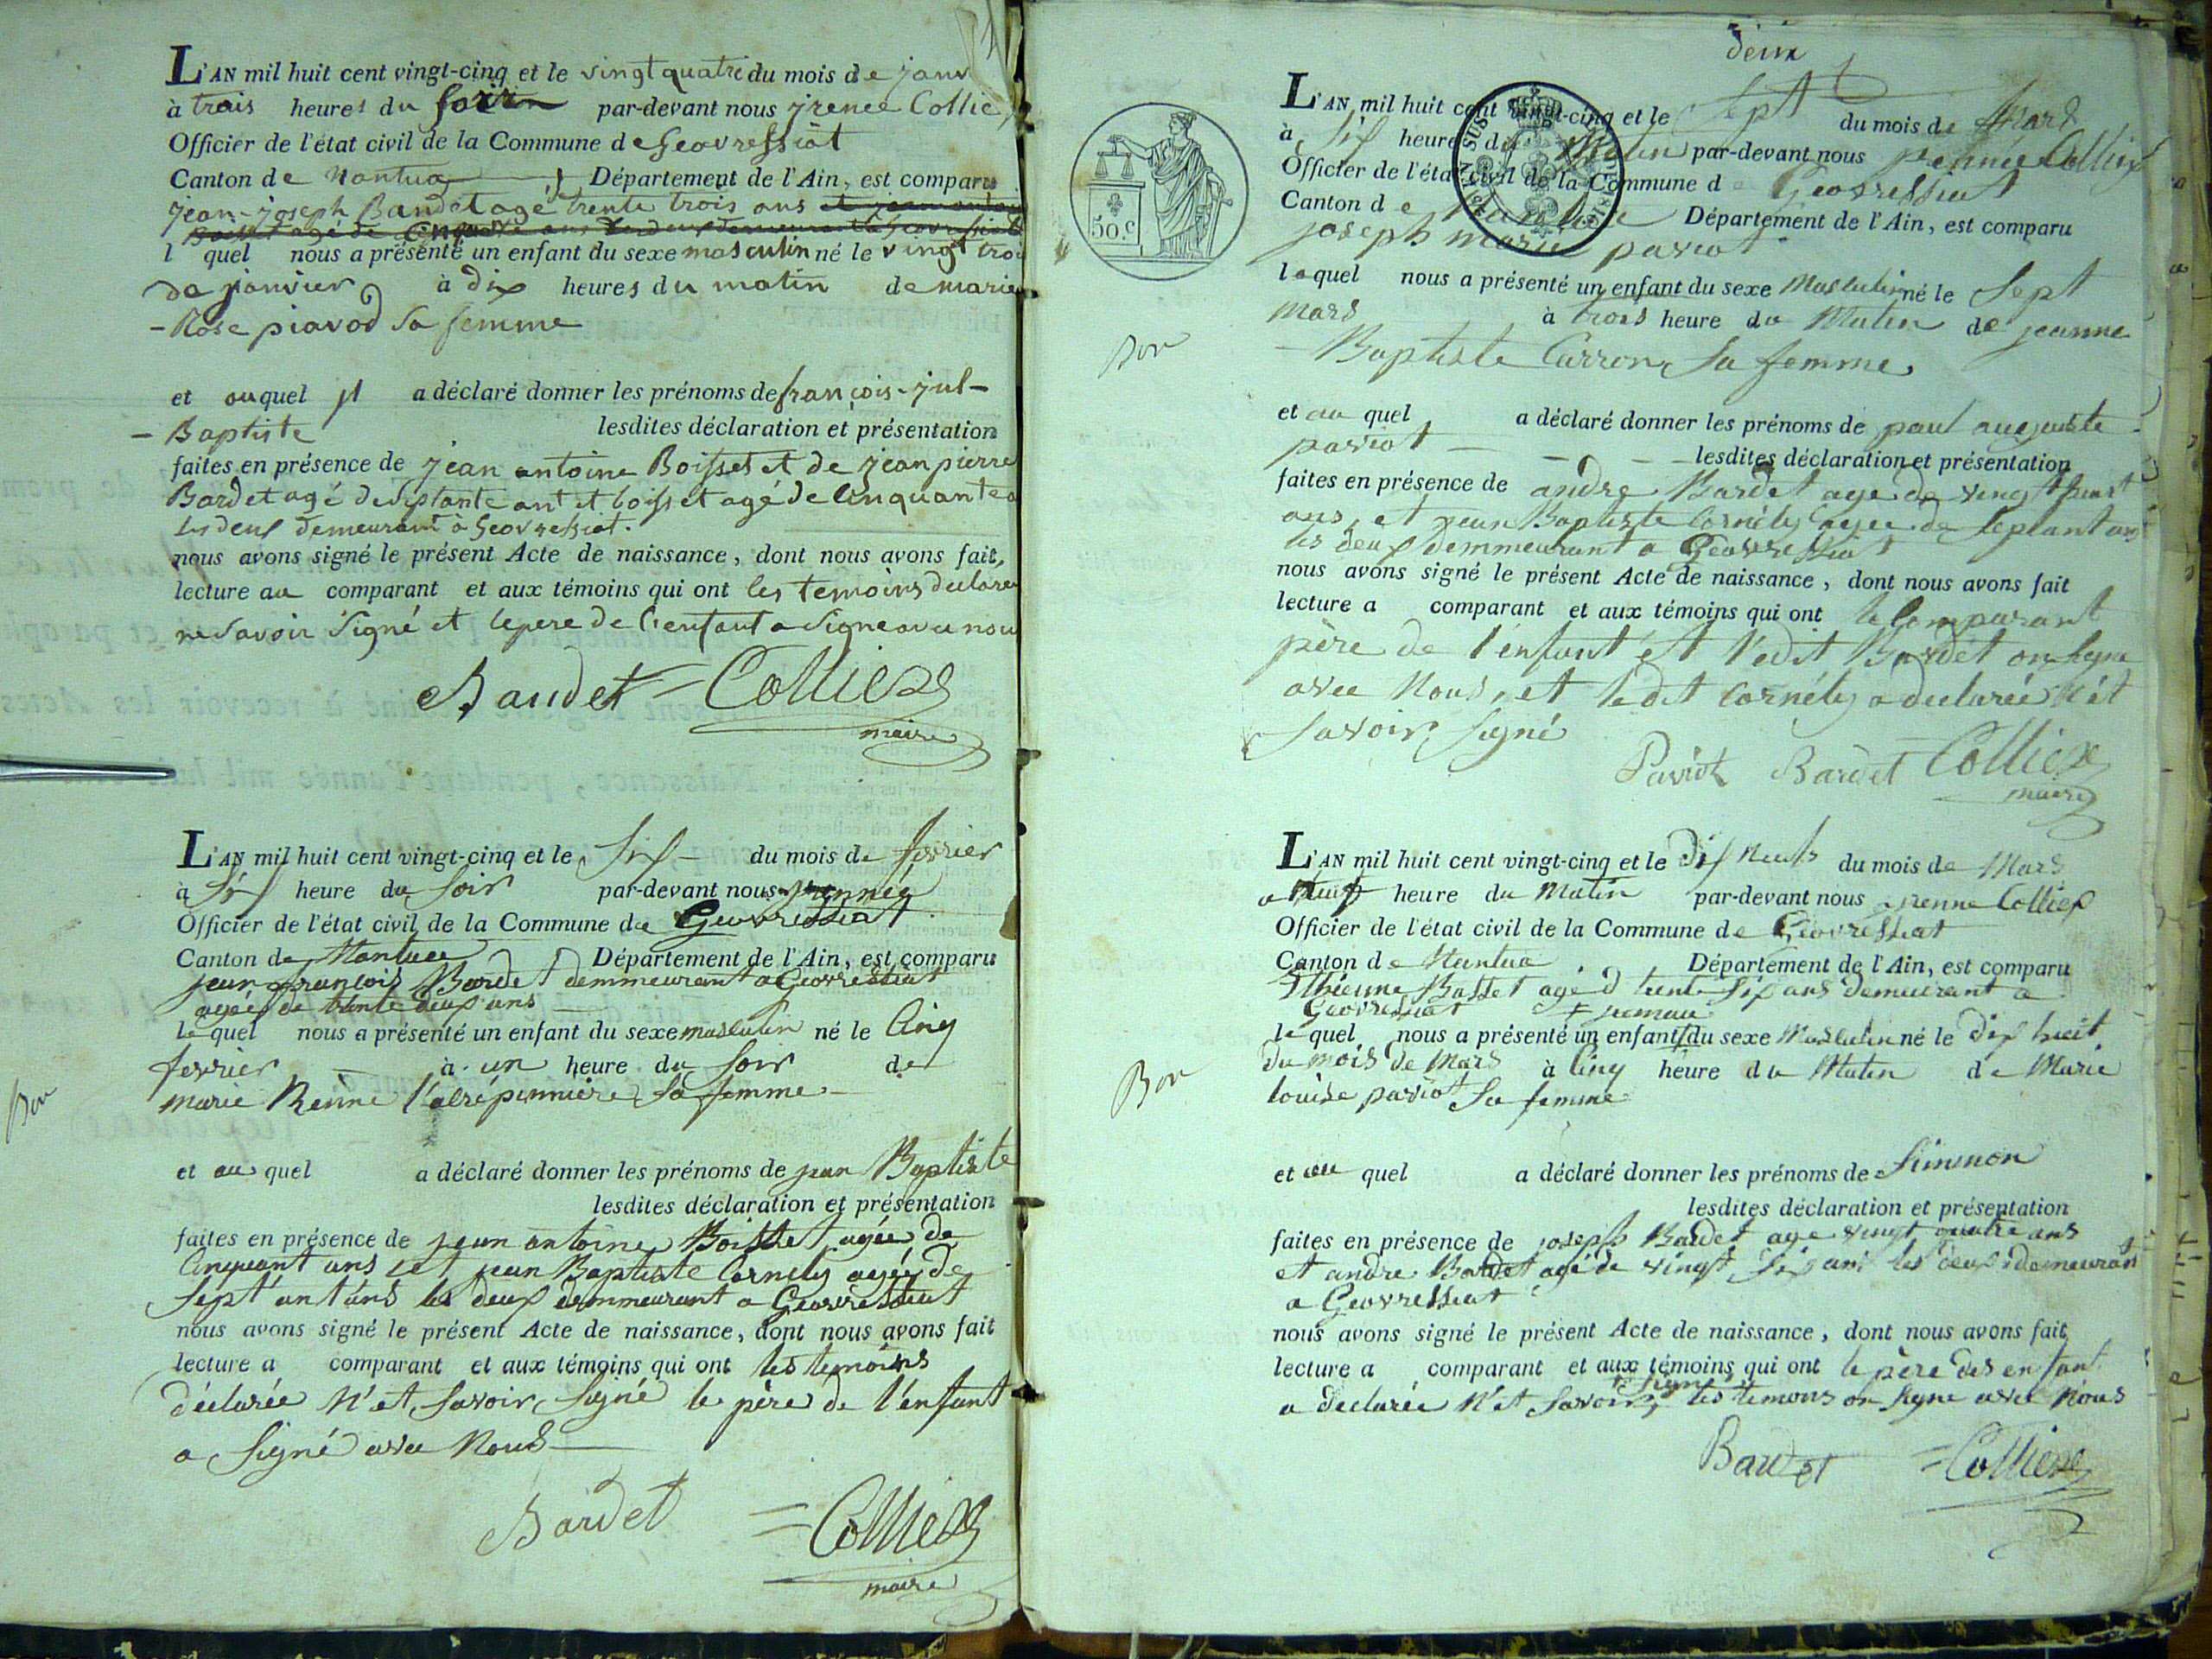 L'AN mil huit cent vingt-cinq et le vingt quatre du mois de janv
à trois heures du soir par-devant nous jrenee Collie
Officier de l'état civil de la Commune de Geovressiat
Canton de Nantua Département de l'Ain, est comparu
jean-joseph Baudet agé trente trois ans
l quel nous a présenté un enfant du sexe masculin né le vingt troi
de janvier à dix heures du matin de marie
- Rose piavod sa femme
et auquel jl a déclaré donner les prénoms de françois-jul-
- Baptiste lesdites déclaration et présentation
faites en présence de jean antoine Boisset et de jean pierre
Bardet agé de septante ant et boisset agé de Cinquante a
les deux demeurant à Geovressiat.
nous avons signé le présent Acte de naissance, dont nous avons fait,
lecture au comparant et aux témoins qui ont les temoins declare
ne savoir signé et le pere de l'enfant a signe avec nou
Baudet = Colliex
maire
L'AN mil huit cent vingt-cinq et le Six - du mois de fevrier
à Six heure du Soir par-devant nous
Officier de l'état civil de la Commune de Geovressiat
Canton de Nantua Département de l'Ain, est comparu
jean françois Bardet demmeurant a Geovressiat
agée de trente deux ans
le quel nous a présenté un enfant du sexe masculin né le Cinq
fevrier à un heure du Soir de
marie Renne sa femme -
et au quel a déclaré donner les prénoms de jean Baptiste
lesdites déclaration et présentation
faites en présence de jean antoine Boisset agée de
Cinquant ans et jean Baptiste Cornely agée de
Sept'ant ans les deux demmeurant a Geovressiat
nous avons signé le présent Acte de naissance, dont nous avons fait
lecture a comparant et aux témoins qui ont les temoins
déclarée N'et Savoir Signé le père de l'énfant
a Signé avec Nous
Bardet = Colliex
maire
Bon
L'AN mil huit cent vingt-cinq et le Sept du mois de Mars
à Six heure du Matin par-devant nous Colliex
Officier de l'état civil de la Commune de Geovressiat
Canton de Nantua Département de l'Ain, est comparu
joseph marie paviot
50.c
lequel nous a présenté un enfant du sexe Masculin né le Sept
mars à trois heure du Matin de jeanne
- Baptiste Carron Sa femme
Bon
et au quel a déclaré donner les prénoms de paul auguste
paviot lesdites déclaration et présentation
faites en présence de andre Bardet age de vingt
ans, et jean Baptiste Cornély agee de Septant ans
les deux demmeurant a Geovressiat
nous avons signé le présent Acte de naissance, dont nous avons fait
lecture a comparant et aux témoins qui ont le Comparant
père de l'énfant ét l'edit Bardét on Signe
avec Nous, et ledit Cornély a declarée N'ét
Savoir Signé
Paviot Bardet Colliex
maire
L'AN mil huit cent vingt-cinq et le dix Neuf du mois de Mars
a Neuf heure du Matin par-devant nous jrenne Colliex
Officier de l'état civil de la Commune de Géovressiat
Canton de Nantua Département de l'Ain, est comparu
Ethienne Bosset agé d trente Six ans demeurant a
Geovressiat
le quel nous a présenté un enfant du sexe Masculin né le dix huit
du mois de Mars à Cinq heure du Matin de Marie
louise paviot Sa femme
Bon
et au quel a déclaré donner les prénoms de Simmon
lesdites déclaration et présentation
faites en présence de joseph Bardet age vingt quatre ans
et andre Bardet agé de vingt Six ans les deux demeuran
a Geovressiat
nous avons signé le présent Acte de naissance, dont nous avons fait
lecture a comparant et aux témoins qui ont le père des enfant
a declarée N'et Savoir Signe, les temons on Signe avec Nous
Bardet = Colliex